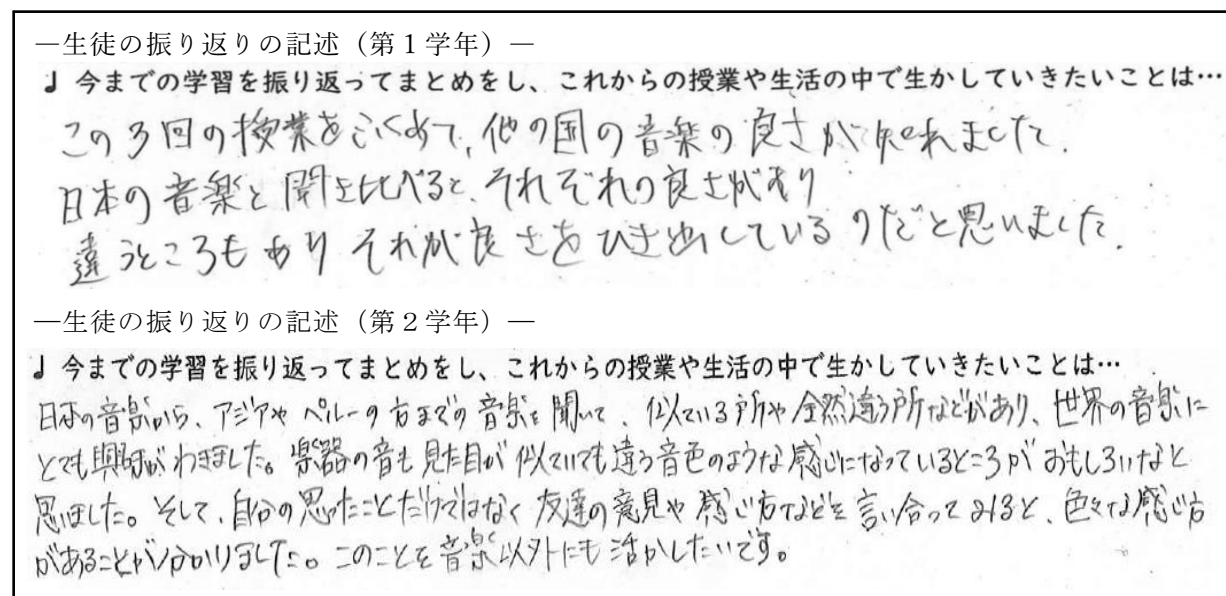 ―生徒の振り返りの記述（第1学年）―
♩ 今までの学習を振り返ってまとめをし、これからの授業や生活の中で生かしていきたいことは…
この3回の授業をふくめて、他の国の音楽の良さが知れました。
日本の音楽と聞き比べると、それぞれの良さがあり
違うところもあり それが良さをひき出しているのだと思いました。
―生徒の振り返りの記述（第2学年）―
♩ 今までの学習を振り返ってまとめをし、これからの授業や生活の中で生かしていきたいことは…
日本の音楽から、アジアや ペルーの方までの 音楽を聞いて、似ている所や全然違う所などがあり、世界の音楽に
とても興味がわきました。楽器の音も見た目が似ていても違う音色のような感じになっているところがおもしろいなと
思いました。そして、自分の思ったことだけではなく 友達の意見や感じ方などを言い合ってみると、色々な感じ方
があることが分かりました。このことを音楽以外にも活かしたいです。